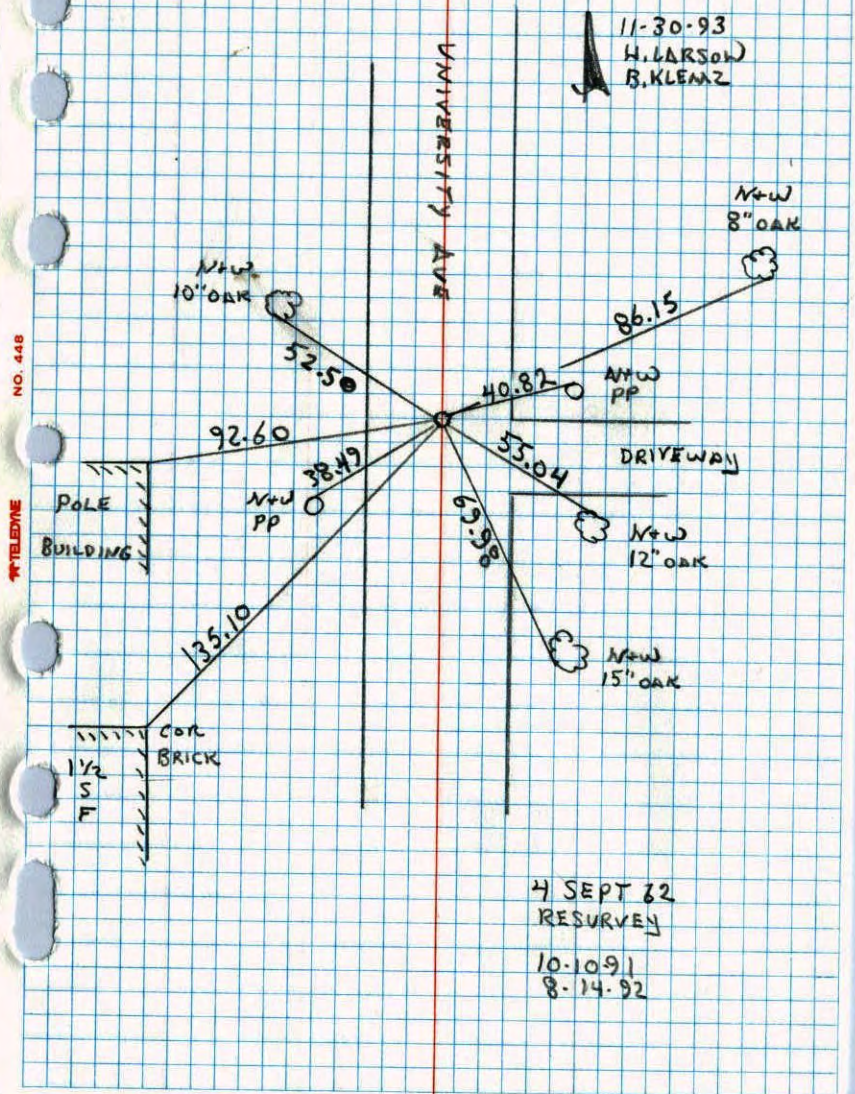 11-30-93
H. LARSON
B. KLEMZ
UNIVERSITY AVE
N+W
8" OAK
N+W
10" OAK
86.15
52.50
40.82
N+W
PP
92.60
38.49
55.04
DRIVEWAY
POLE
BUILDING
N+W
PP
69.98
N+W
12" OAK
135.10
N+W
15" OAK
COR
BRICK
1 1/2
S
F
4 SEPT 62
RESURVEY
10-10-91
8-14-92
NO. 448
TELEDYNE